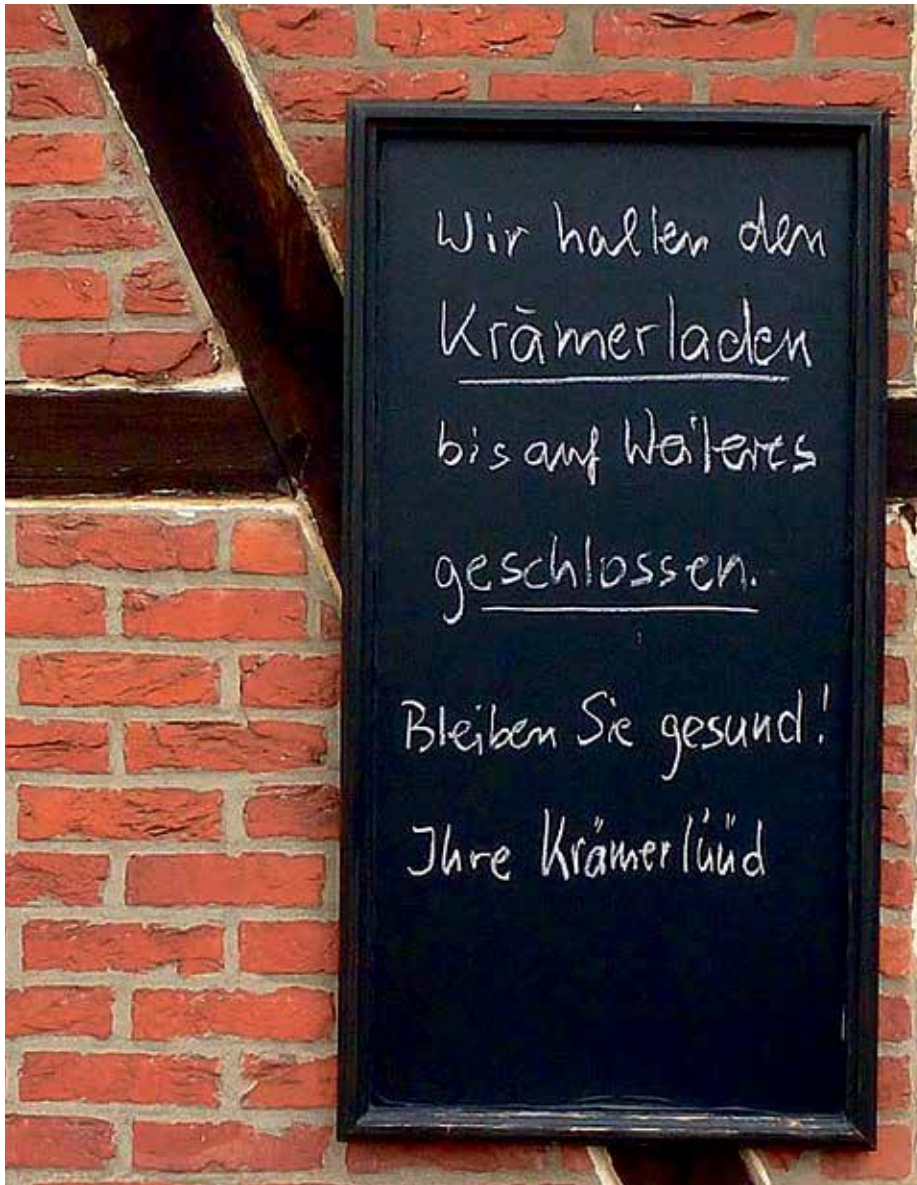 Wir halten den
Krämerladen
bis auf Weiteres
geschlossen.
Bleiben Sie gesund!
Ihre Krämerlüüd